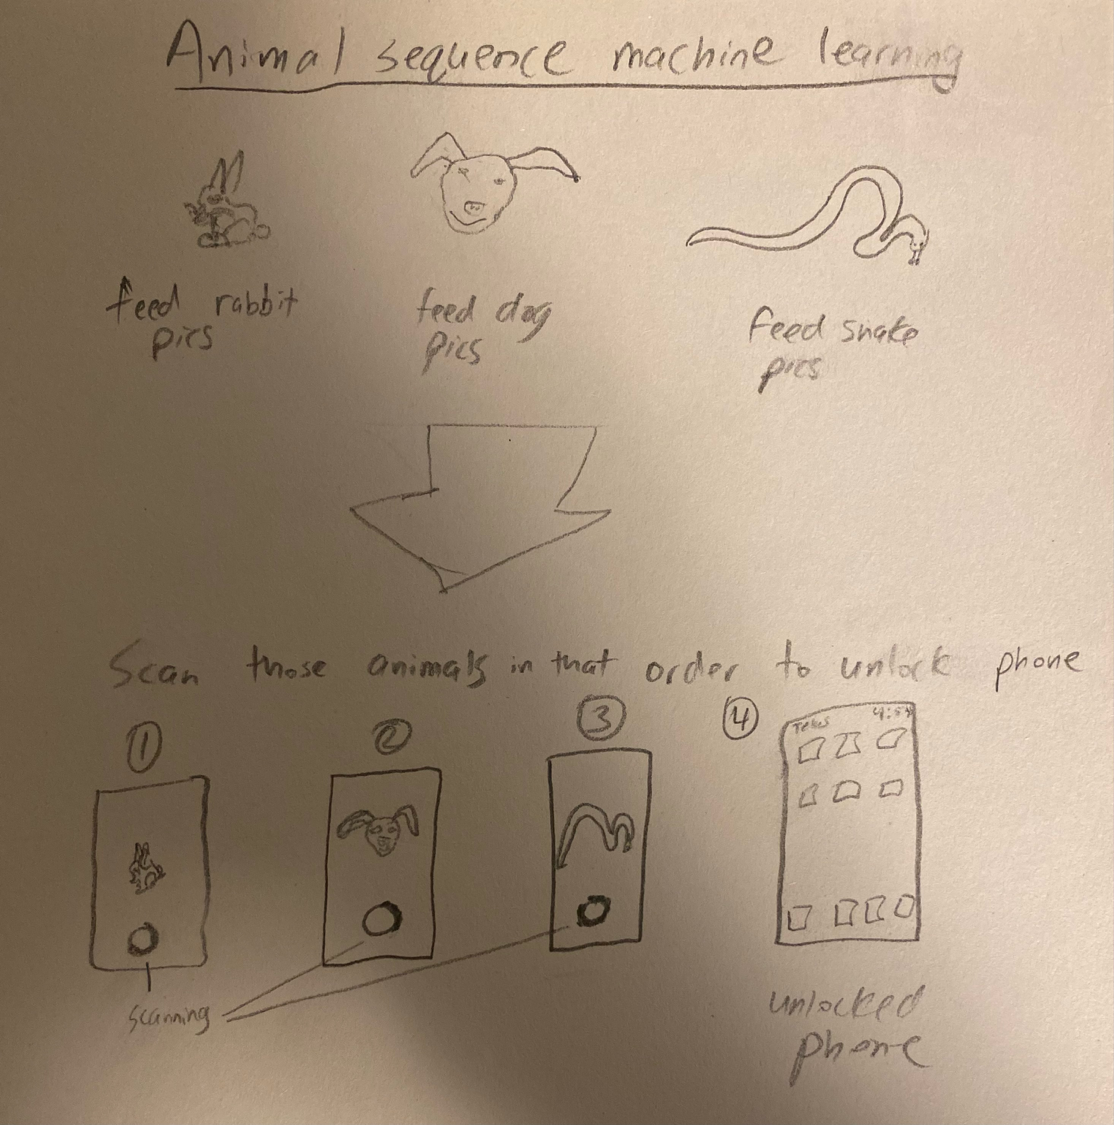 Animal sequence machine learning
feed rabbit
pics
feed dog
pics
feed snake
pics
Scan those animals in that order to unlock phone
1
2
3
4
Telus
scanning
unlocked
phone